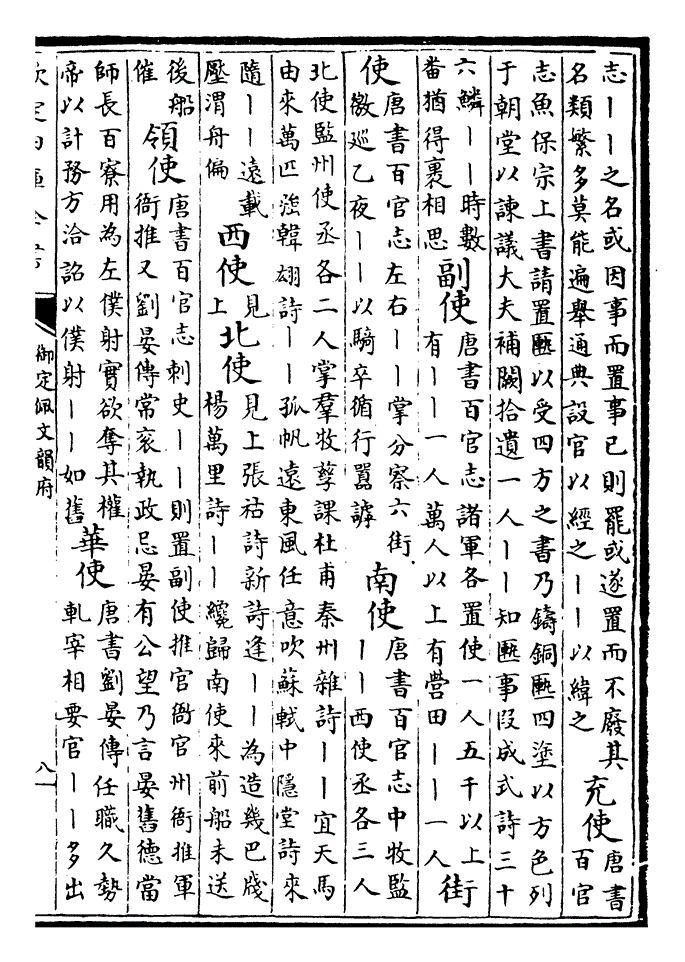 志丨丨之名或因事而置事已則罷或遂置而不廢其
名類繁多莫能遍舉通典設官以經之丨丨以緯之
充使
唐書
百官
志魚保宗上書請置匭以受四方之書乃鑄銅匭四塗以方色列
于朝堂以諫議大夫補闕拾遺一人丨丨知匭事段成式詩三十
六鱗丨丨時數
番猶得裹相思
副使
唐書百官志諸軍各置使一人五千以上
有丨丨一人萬人以上有營田丨丨一人
街
使
唐書百官志左右丨丨掌分察六街
徼巡乙夜丨丨以騎卒循行嚻謼
南使
唐書百官志中牧監
丨丨西使丞各三人
北使監州使丞各二人掌羣牧孳課杜甫秦州雜詩丨丨宜天馬
由來萬匹强韓翃詩丨丨孤帆遠東風任意吹蘇軾中隱堂詩來
隨丨丨遠載
壓渭舟偏
西使
見
上
北使
見上張祜詩新詩逢丨丨為造幾巴牋
楊萬里詩丨丨纔歸南使來前船未送
後船
催
領使
唐書百官志刺史丨丨則置副使推官衙官州衙推軍
衙推又劉晏傳常衮執政忌晏有公望乃言晏舊德當
師長百寮用為左僕射實欲奪其權
帝以計務方洽詔以僕射丨丨如舊
華使
唐書劉晏傳任職久勢
軋宰相要官丨丨多出
欽定四庫全書
御定佩文韻府